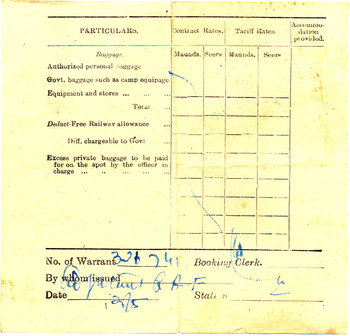 PARTICULARS. Contract Rates. Tariff Rates. Accommodation provided.
Baggage. Maunds. Seers Maunds. Seers
Authorized personal baggage
Govt. baggage such as camp equipage
Equipment and stores ... ... ...
Total ...
Deduct-Free Railway allowance ...
Diff. chargeable to Govt ...
Excess private baggage to be paid
for on the spot by the officer in
charge ... ... ... ...
No. of Warrant Booking Clerk.
By whom issued
Date Station